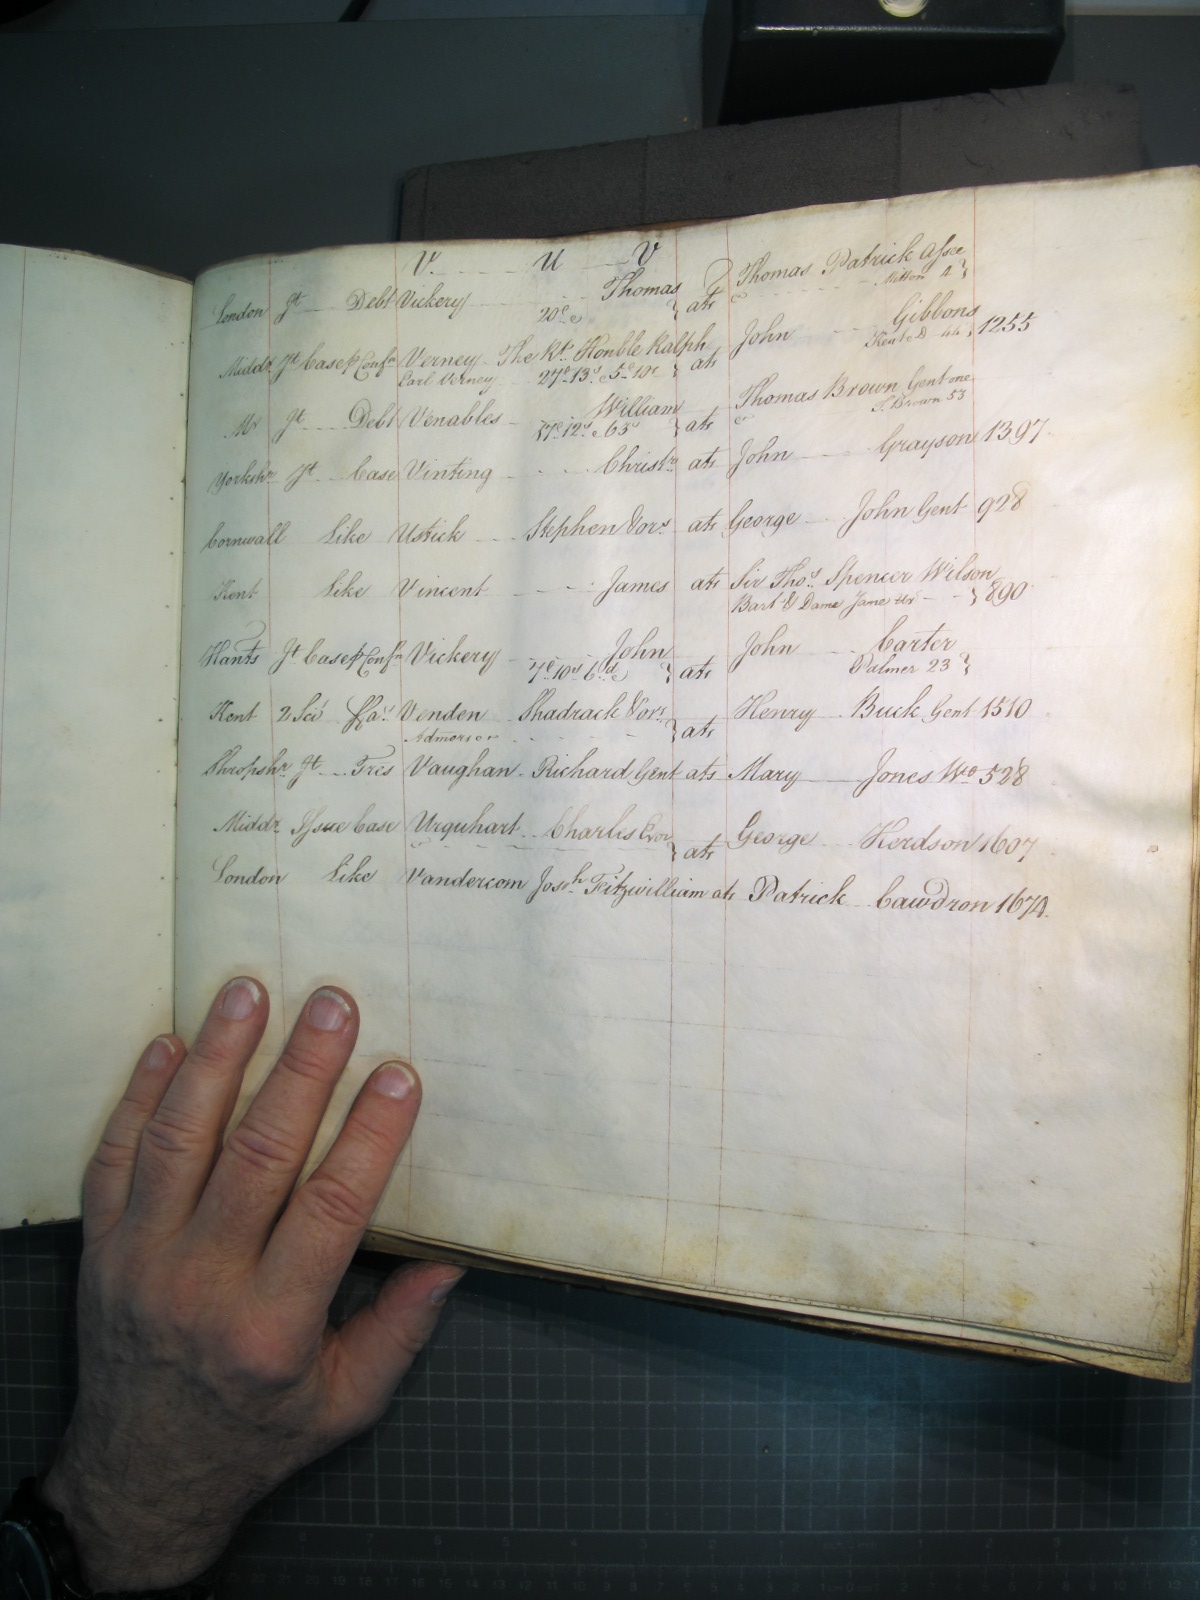 V U V
London Jt Debt Vickery Thomas } ats Thomas Patrick Assee
20£ Mitton 4 }
Middx Jt Case p Confn Verney The Rt. Honble Ralph } ats John Gibbons 1255
Earl Verney 27£ 13s 44 }
Mr Jt Debt Venables William } ats Thomas Brown Gent one
17£ 12s 63s T. Brown 53
Yorkshr Jt Case Vinting Christr ats John Grayson 1397
Cornwall Like Ustick Stephen Vors ats George John Gent 928
Kent Like Vincent James ats Sir Thos. Spencer Wilson } 890
Bart & Dame Jane Ux
Hants Jt Case p Confn Vickery John } ats John Carter
7£ 10s 6d Palmer 23 }
Kent 2 Sci Fas Venden Shadrack Vors } ats Henry Buck Gent 1510
Admors
Shropshr Jt Tres Vaughan Richard Gent ats Mary Jones Wo 528
Middx Issue Case Urquhart Charles Exor } ats George Herdson 1607
London Like Vandercom Josh Fitzwilliam ats Patrick Cawdron 1674